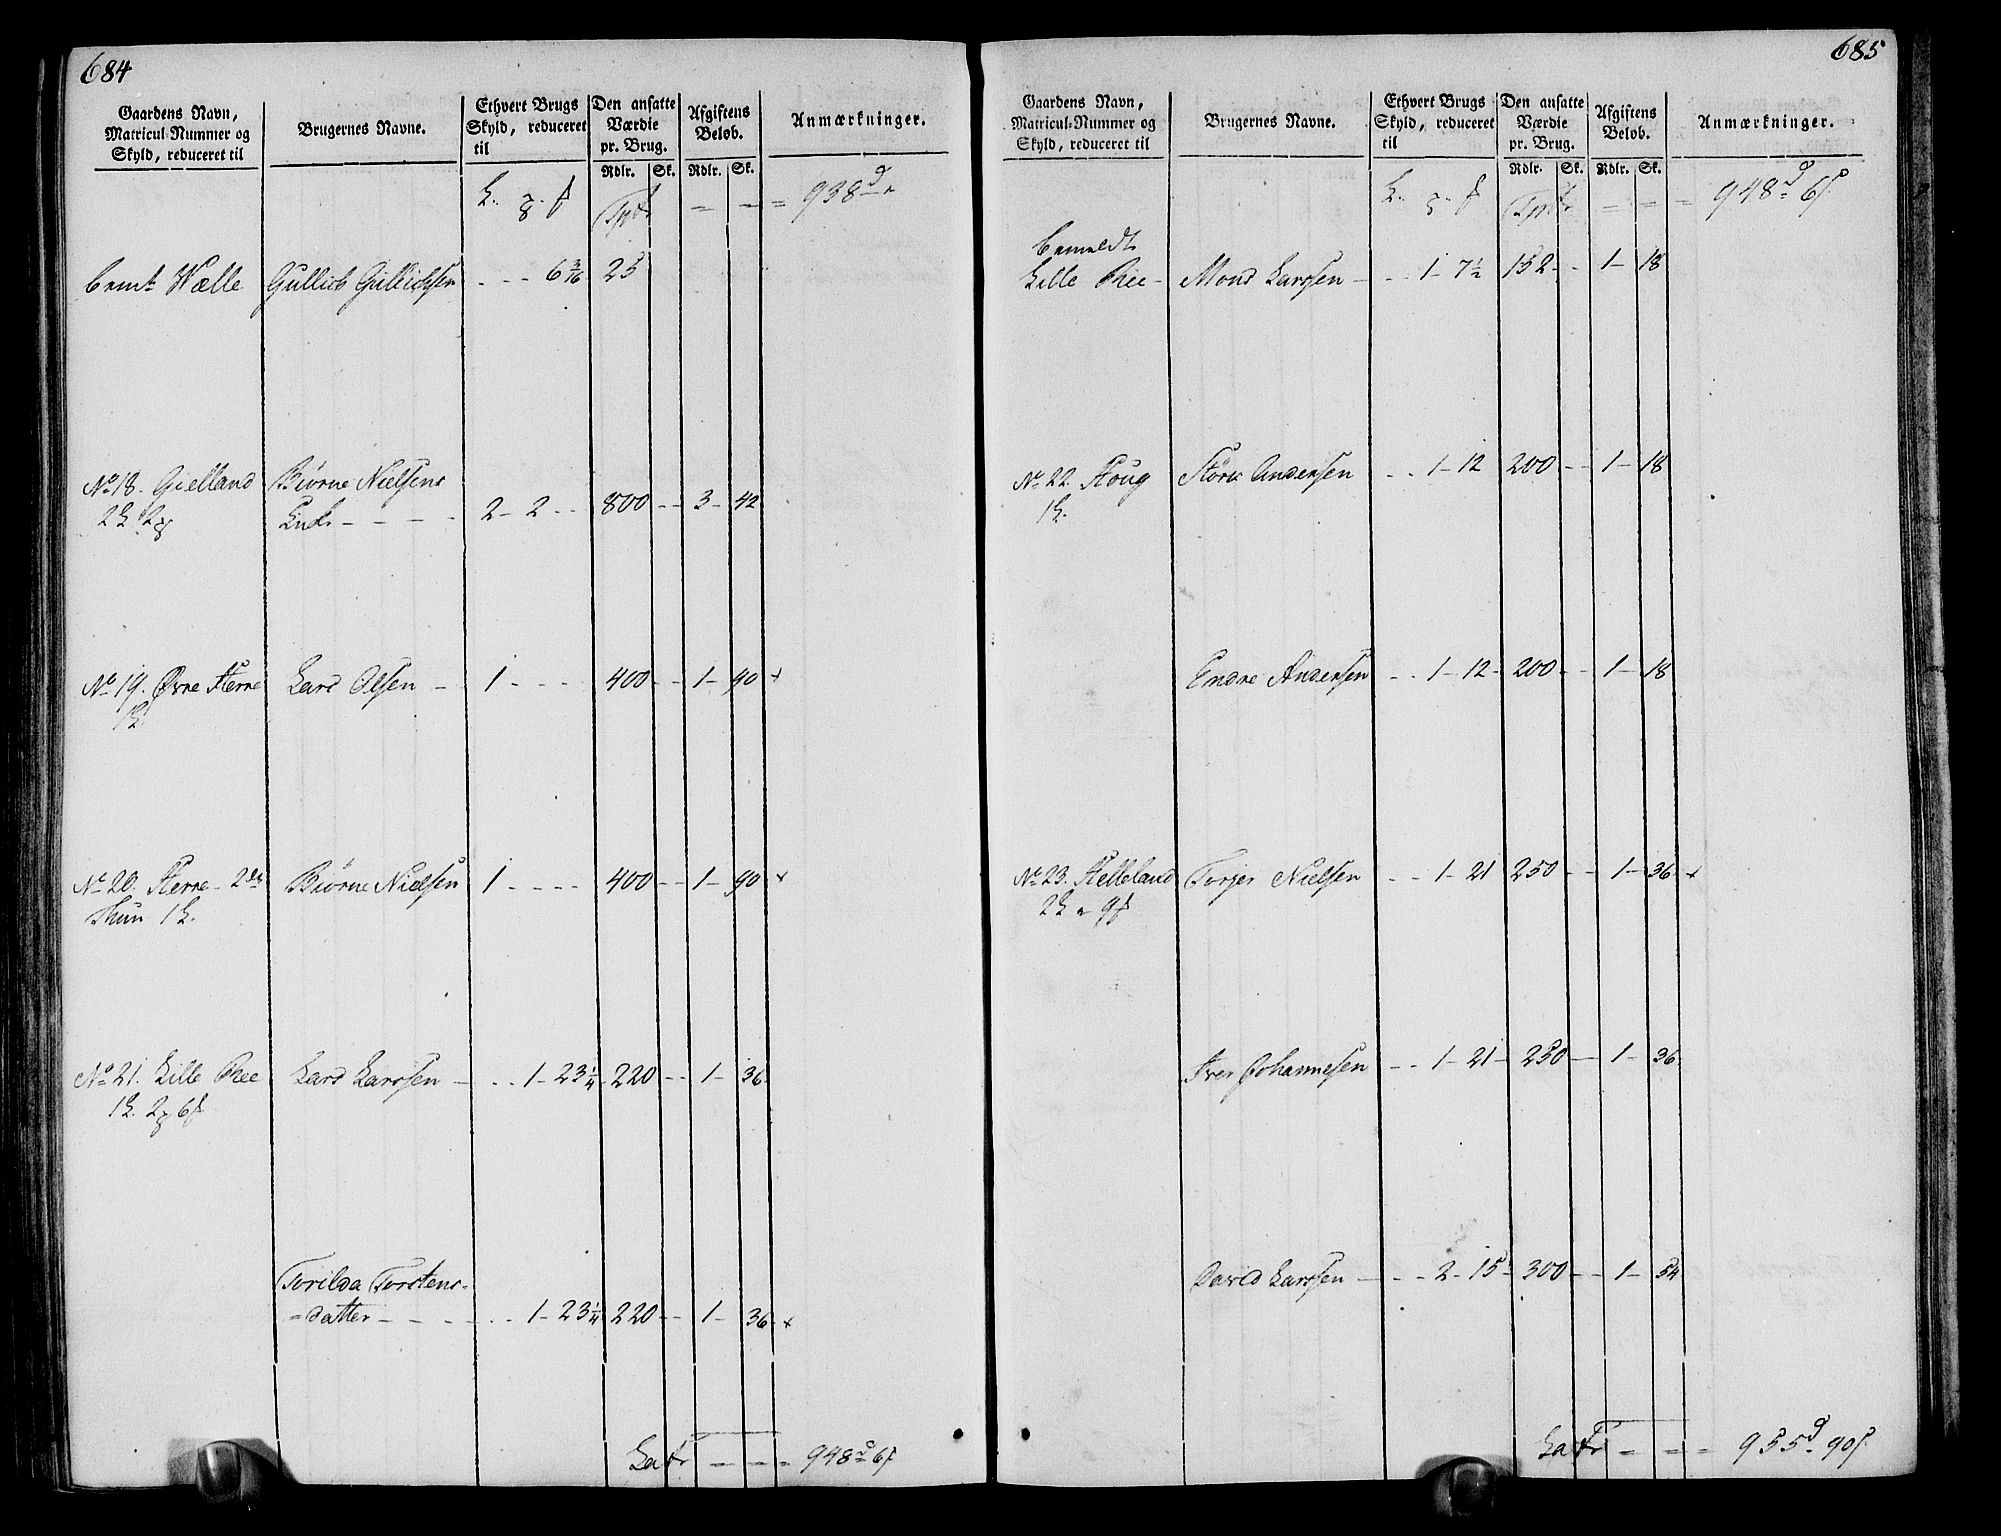 684
Gaardens Navn, Matricul-Nummer og Skyld, reduceret til
Brugernes Navne.
Ethvert Brugs Skyld, reduceret til
Den ansatte Værdie pr. Brug.
Rdlr. Sk.
Afgiftens Beløb.
Rdlr. Sk.
Anmærkninger.
Tpt = — = 938 d "
bemt Wælle Gullich Gullichsen - - - 6 3/16 25
No 18. Gielland Biørne Nielsens
Enke - - - - 2 - 2 - - 800 - - 3 - 42
No 19. Øvre Herre Lars Olsen - 1 - - - 400 - - 1 - 90 x
No 20. Herre Biørne Nielsen 1 - - - - 400 - - 1 - 90 x
No 21. Lille Ree Lars Larssen - - - 1 - 23 1/4 220 - - 1 - 36
Torilda Torstens-
=datter - - - - - - 1 - 23 1/4 220 - - 1 - 36 x
Latr — = — = 948 d 6 s
685
Gaardens Navn, Matricul-Nummer og Skyld, reduceret til
Brugernes Navne.
Ethvert Brugs Skyld, reduceret til
Den ansatte Værdie pr. Brug.
Rdlr. Sk.
Afgiftens Beløb.
Rdlr. Sk.
Anmærkninger.
Tpt = = = 948 d 6 s
bemeldt
Lille Ree - Mons Larssen - - - 1 - 7 1/2 152 - - 1 - 18
No 22. Houg Størk Andersen - - 1 - 12 200 - - 1 - 18
Endre Andersen - - 1 - 12 - 200 - - 1 - 18
No 23. Helleland Torjer Nielsen - - 1 - 21 250 - - 1 - 36 x
Iver Johannesen - - 1 - 21 - 250 - - 1 - 36
David Larssen - - - 2 - 15 - 300 - - 1 - 54
Latr = = = 955 d 90 s